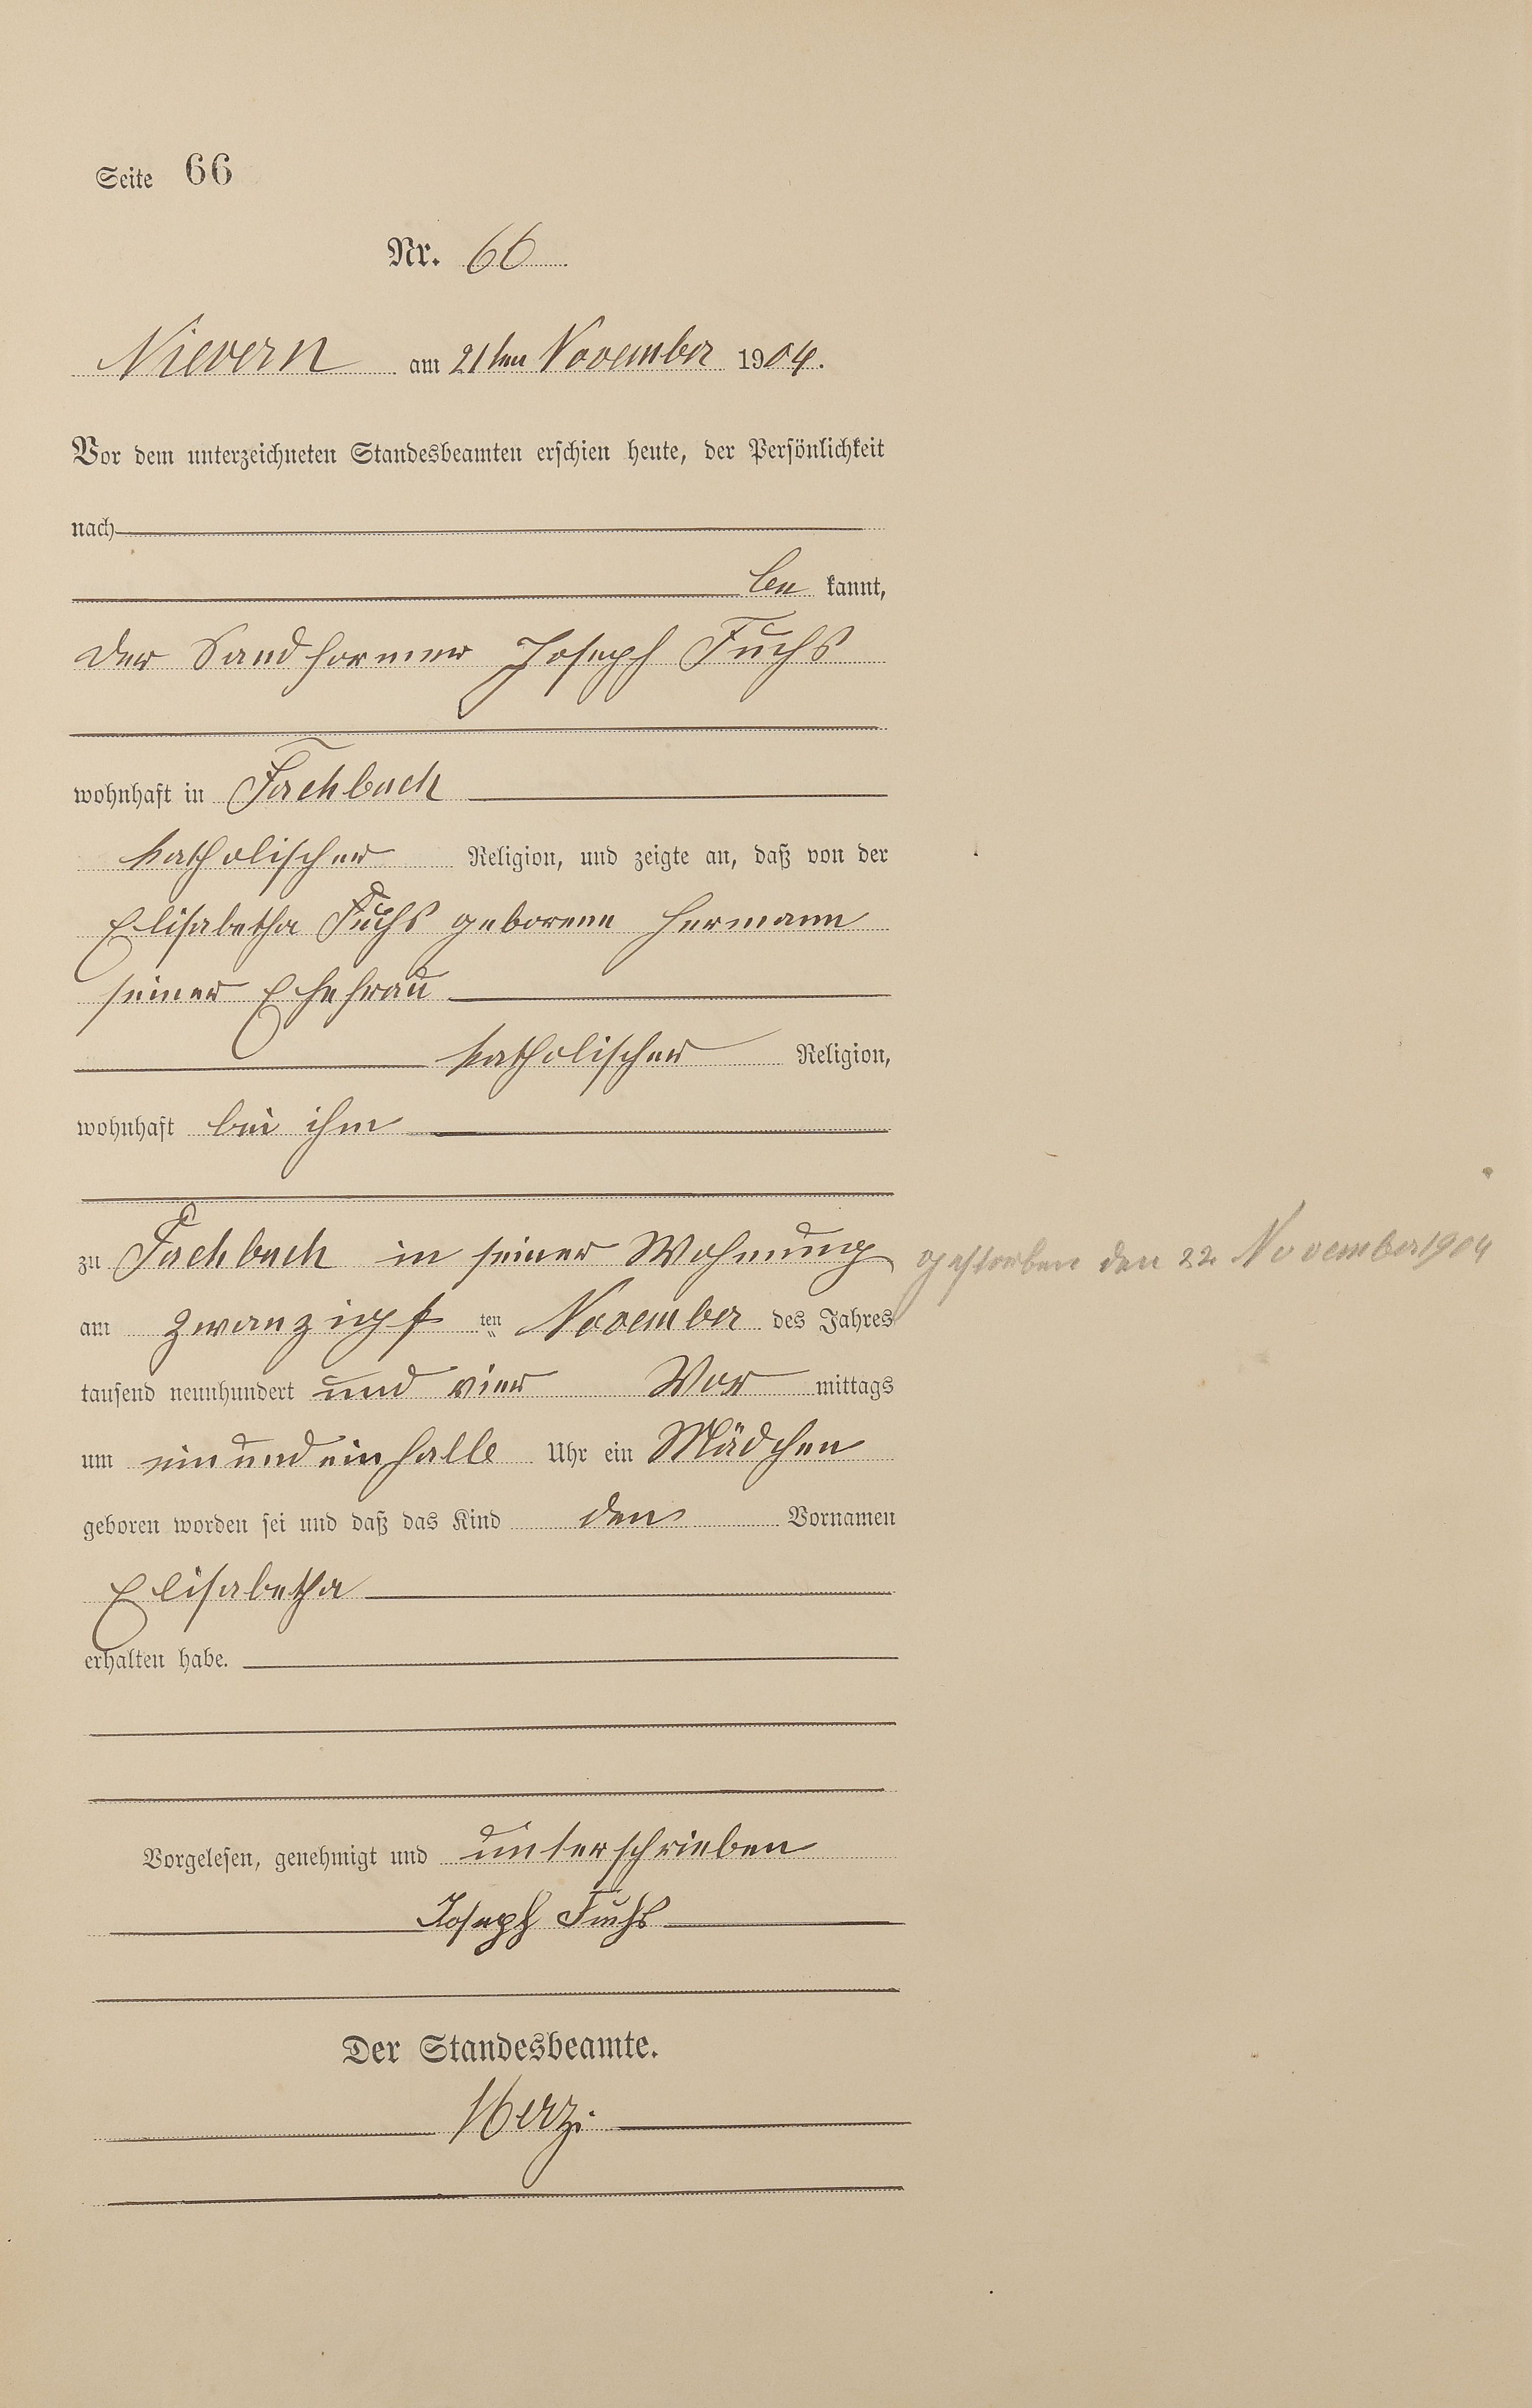 Seite 66
Nr. 66
Nievern am 21ten November 1904.
Vor dem unterzeichneten Standesbeamten erschien heute, der Persönlichkeit
nach
be kannt,
der Sandformer Joseph Fuchs
wohnhaft in Fachbach
katholischer Religion, und zeigte an, daß von der
Elisabetha Fuchs geborene Hermann
seiner Ehefrau
katholischer Religion,
wohnhaft bei ihm
zu Fachbach in seiner Wohnung
gestorben den 22 November 1904
am zwanzigs ten November des Jahres
tausend neunhundert und vier Vor mittags
um ein und ein halb Uhr ein Mädchen
geboren worden sei und daß das Kind den Vornamen
Elisabetha
erhalten habe.
Vorgelesen, genehmigt und unterschrieben
Joseph Fuchs
Der Standesbeamte.
Herz.